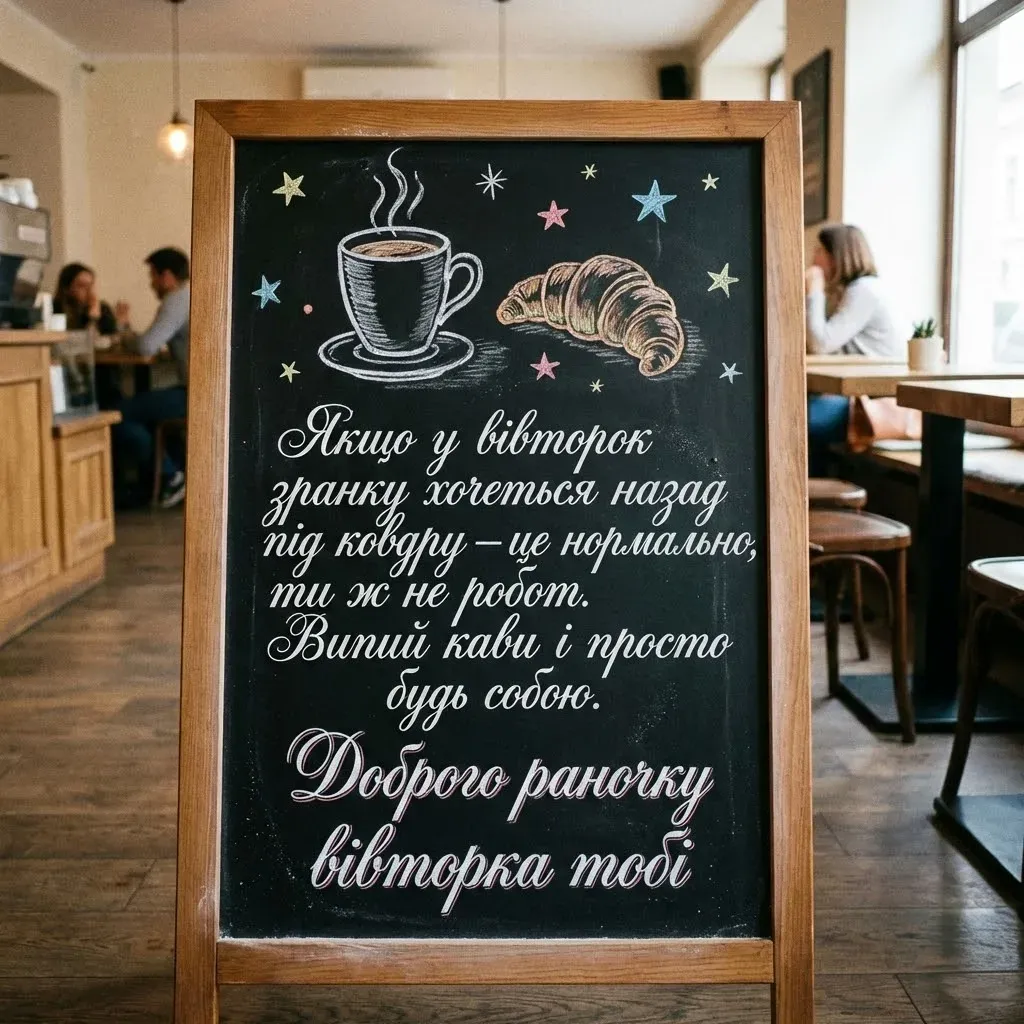 Якщо у вівторок
зранку хочеться назад
під ковдру – це нормально,
ти ж не робот.
Випий кави і просто
будь собою.
Доброго раночку
вівторка тобі